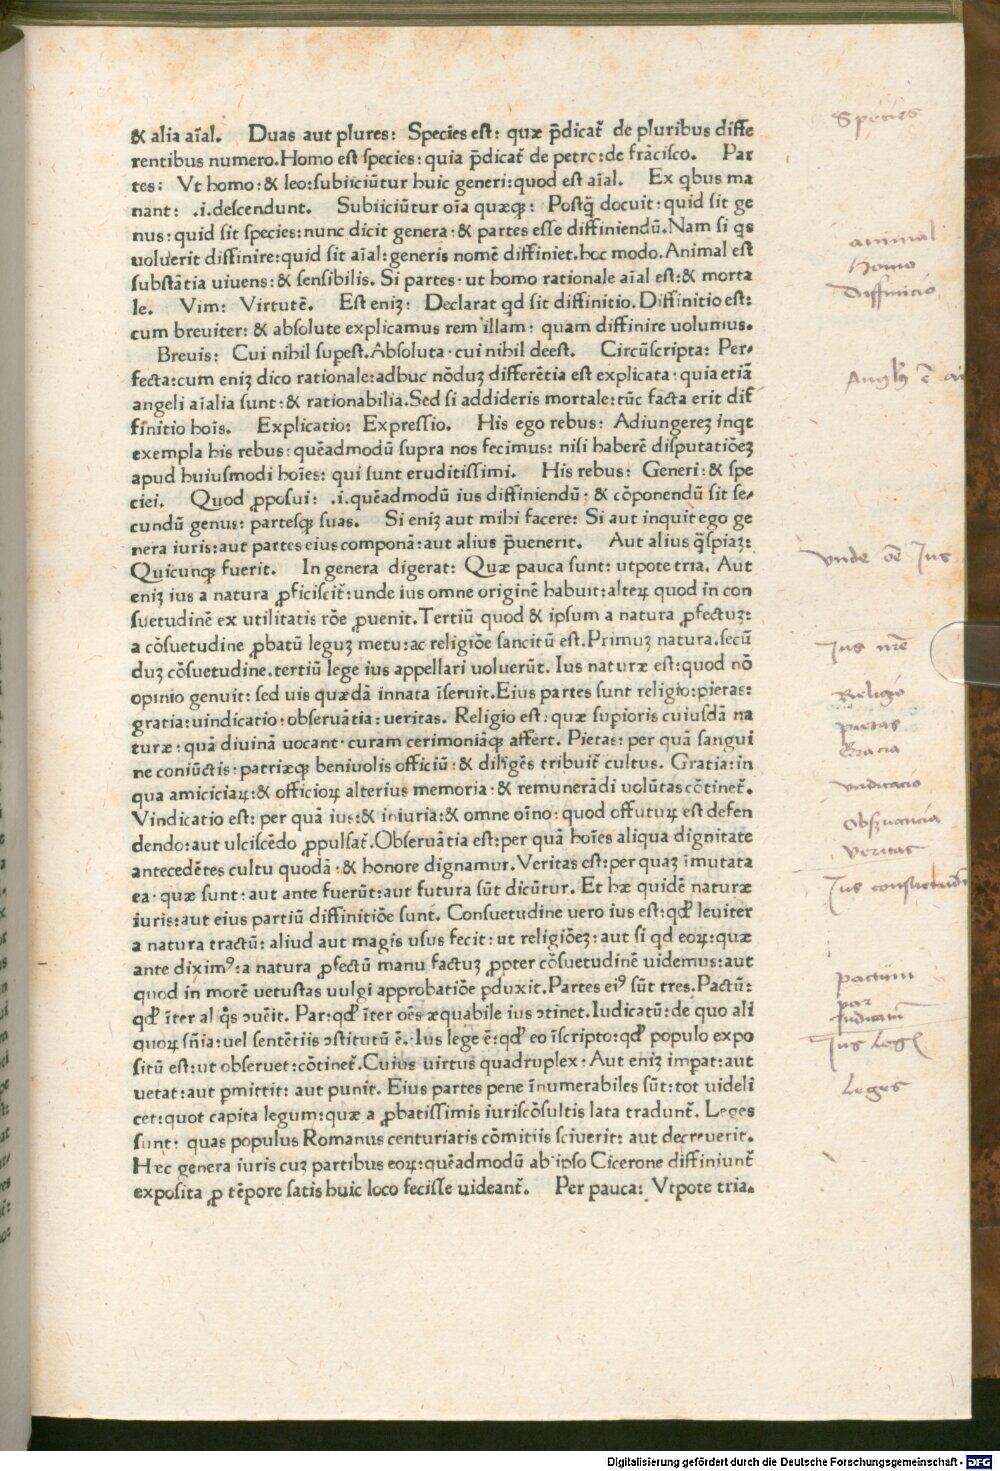 & alia aīal. Duas aut plures: Species est: quæ p̄dicat̄ de pluribus diffe
rentibus numero. Homo est species: quia p̄dicat̄ de petro: de frācisco. Par
tes: Vt homo: & leo: subiiciūtur huic generi: quod est aīal. Ex qbus ma
nant: .i. descendunt. Subiiciūtur oīa quæqꝫ: Postq̄ docuit: quid sit ge
nus: quid sit species: nunc dicit genera · & partes esse diffiniendū. Nam si qs
uoluerit diffinire: quid sit aīal: generis nomē diffiniet. hoc modo. Animal est
substātia uiuens: & sensibilis. Si partes · ut homo rationale aīal est: & morta
le. Vim: Virtutē. Est eniꝫ: Declarat qd sit diffinitio. Diffinitio est:
cum breuiter: & absolute explicamus rem illam: quam diffinire uolumus.
Breuis: Cui nihil supest. Absoluta · cui nihil deest. Circūscripta: Per-
fecta: cum eniꝫ dico rationale: adhuc nōduꝫ differētia est explicata · quia etiā
angeli aīalia sunt: & rationabilia. Sed si addideris mortale: tūc facta erit dif
finitio hoīs. Explicatio: Expressio. His ego rebus: Adiungereꝫ inqt
exempla his rebus: quēadmodū supra nos fecimus: nisi haberē disputatiōeꝫ
apud huiusmodi hoīes: qui sunt eruditissimi. His rebus: Generi: & spe
ciei. Quod ꝓposui: .i. quēadmodū ius diffiniendū · & cōponendū sit se-
cundū genus: partesqꝫ suas. Si eniꝫ aut mihi facere: Si aut inquit ego ge
nera iuris: aut partes eius componā: aut alius p̄uenerit. Aut alius q̄spiaꝫ:
Quicunqꝫ fuerit. In genera digerat: Quæ pauca sunt: utpote tria. Aut
eniꝫ ius a natura ꝓficiscit̄: unde ius omne originē habuit: alteꝝ quod in con
suetudinē ex utilitatis rōe ꝓuenit. Tertiū quod & ipsum a natura ꝓfectuꝫ:
a cōsuetudine ꝓbatū leguꝫ metu: ac religiōe sancitū est. Primuꝫ natura. secū
duꝫ cōsuetudine. tertiū lege ius appellari uoluerūt. Ius naturæ est: quod nō
opinio genuit: sed uis quædā innata īseruit. Eius partes sunt religio: pietas:
gratia: uindicatio: obseruātia: ueritas. Religio est: quæ supioris cuiusdā na
turæ: quā diuinā uocant · curam cerimoniāqꝫ affert. Pietas: per quā sangui
ne coniūctis · patriæqꝫ beniuolis officiū · & diligēs tribuit̄ cultus. Gratia: in
qua amiciciaꝝ: & officioꝝ alterius memoria · & remunerādi uolūtas cōtinet̄.
Vindicatio est: per quā ius: & iniuria: & omne oīno: quod offutuꝝ est defen
dendo: aut ulciscēdo ꝓpulsat̄. Obseruātia est: per quā hoīes aliqua dignitate
antecedētes cultu quodā · & honore dignamur. Veritas est: per quaꝫ īmutata
ea · quæ sunt · aut ante fuerūt: aut futura sūt dicūtur. Et hæ quidē naturæ
iuris: aut eius partiū diffinitiōe sunt. Consuetudine uero ius est: qđ leuiter
a natura tractū: aliud aut magis usus fecit: ut religiōeꝫ: aut si qd eoꝝ: quæ
ante diximꝰ: a natura ꝓfectū manu factuꝫ ꝓpter cōsuetudinē uidemus: aut
quod in morē uetustas uulgi approbatiōe pduxit. Partes eiꝰ sūt tres. Pactū:
qđ īter al q̄s ɔuēit. Par: qđ īter oēs æquabile ius ɔtinet. Iudicatū: de quo ali
quoꝝ sn̄ia: uel sentētiis ɔstitutū ē. Ius lege ē: qđ eo īscripto: qđ populo expo
sitū est: ut obseruet: cōtinet̄. Cuius uirtus quadruplex · Aut eniꝫ impat: aut
uetat: aut pmittit: aut punit. Eius partes pene īnumerabiles sūt: tot uideli
cet: quot capita legum: quæ a ꝓbatissimis iuriscōsultis lata tradunt̄. Leges
sunt: quas populus Romanus centuriatis cōmitiis sciuerit: aut decreuerit.
Hæc genera iuris cuꝫ partibus eoꝝ: quēadmodū ab ipso Cicerone diffiniunt̄
exposita ꝓ tēpore satis huic loco fecisse uideant̄. Per pauca: Vtpote tria.
Species
animal
homo
Diffinicio
Vnde oē Ius
Ius
Religio
pietas
Gracia
vindicatio
Obseruancia
Veritas
Ius consuetud
pactum
par
Iudicatum
Ius
Leges
Digitalisierung gefördert durch die Deutsche Forschungsgemeinschaft - DFG